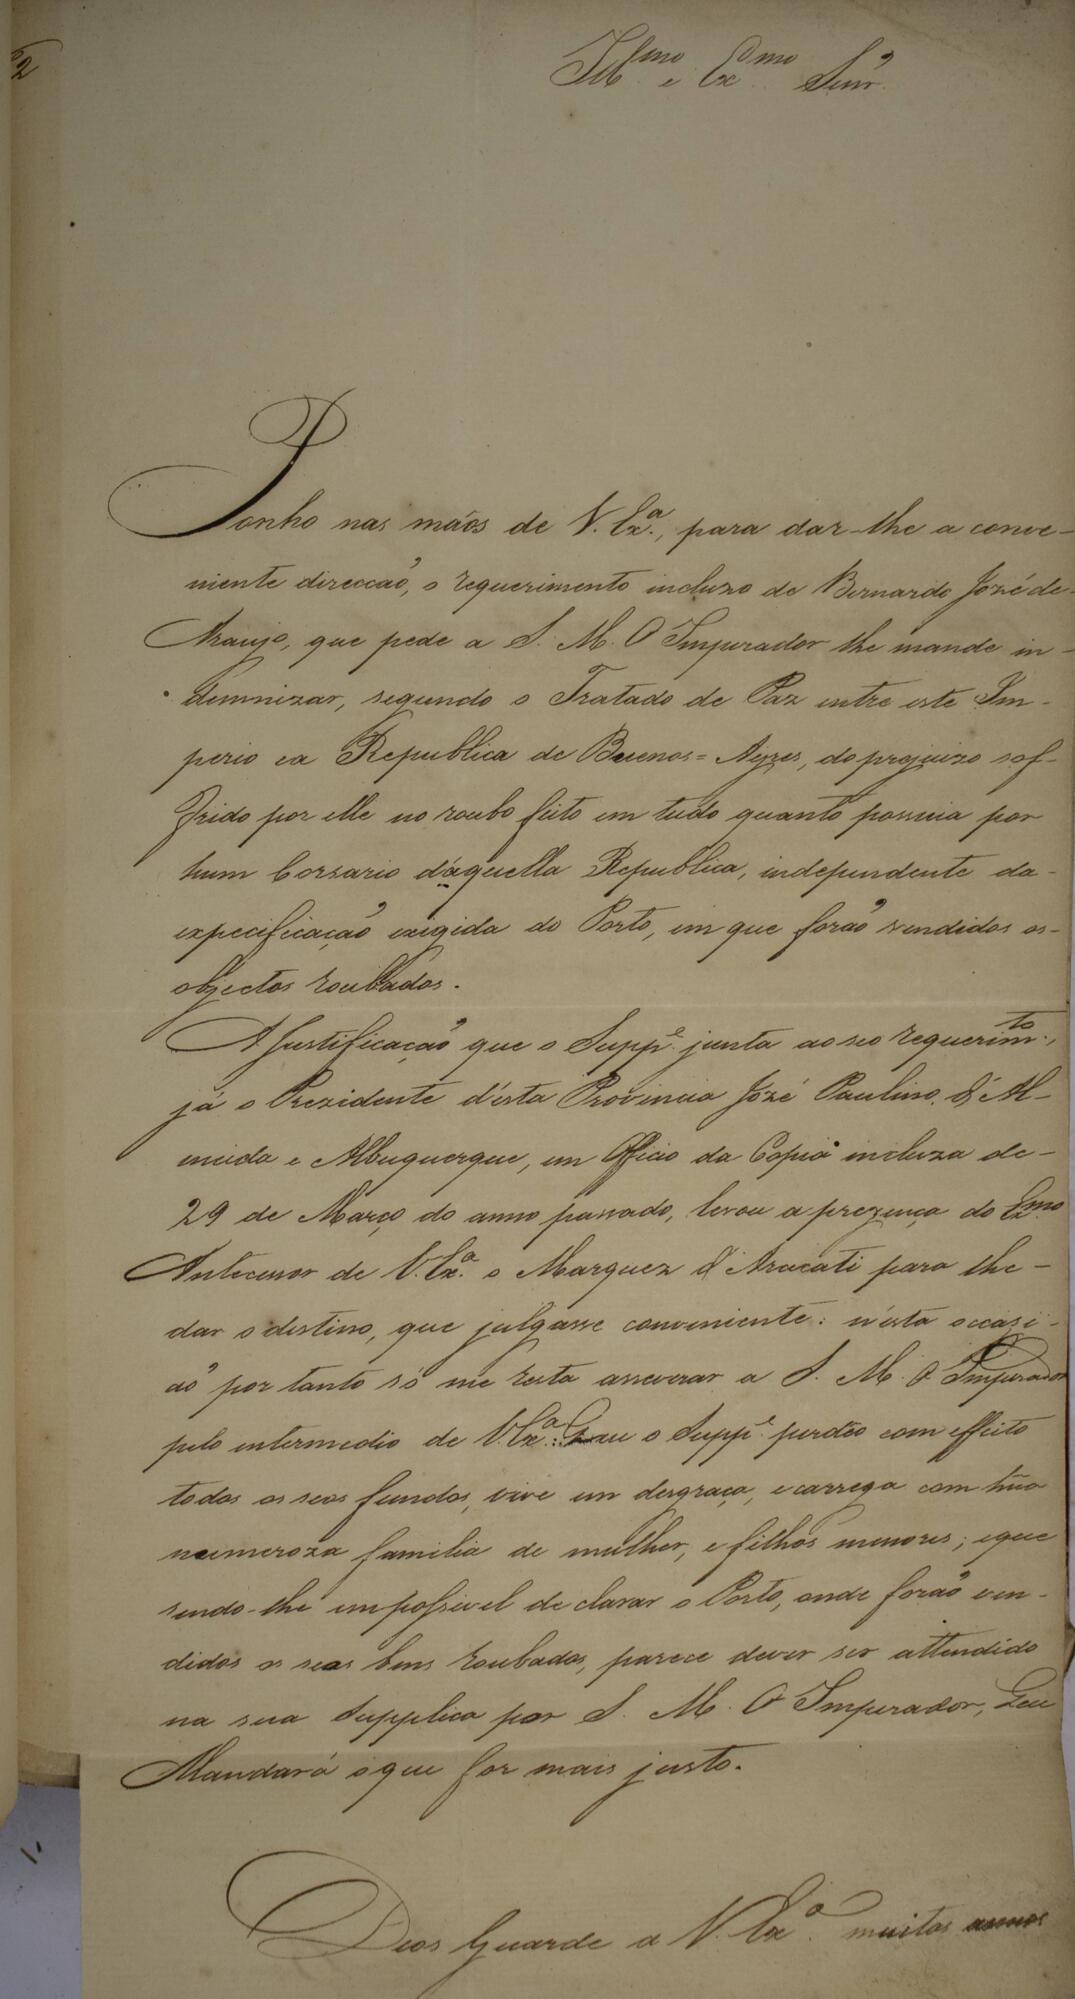 2
Ill.mo e Ex.mo Snr.
Ponho nas mãos de V. Ex.a, para dar-lhe a conve-
niente direcção, o requerimento incluzo de Bernardo José de
Araujo, que pede a S. M. O Imperador lhe mande in-
demnizar, segundo o Tratado de Paz entre este Im-
perio e a Republica de Buenos=Ayres, do prejuizo sof-
frido por elle no roubo feito em tudo quanto possuia por
hum Corsario d'aquella Republica, independente da
expecificação exigida do Porto, em que forão vendidos os
objectos roubados.
A Justificação que o Supp.e junta ao seo requerim.to,
já o Prezidente d'esta Provincia Jozé Paulino d'Al-
meida e Albuquerque, em Officio da Copia incluza de
29 de Março do anno passado, levou a prezença do Ex.mo
Antecessor de V. Ex.a o Marquez d'Aracati para lhe
dar o destino, que julgasse conveniente: n'esta occazi-
ão por tanto só me resta asseverar a S. M. O Imperador
pelo intermedio de V. Ex.a Que o Supp.e perdeo com effeito
todos os seos fundos, vive em desgraça, e carrega com hũa
numeroza familia de mulher, e filhos menores; e que
sendo-lhe impossivel declarar o Porto, onde forão ven-
didos os seos bens roubados, parece dever ser attendido
na sua Supplica por S. M. O Imperador, Que
Mandará o que for mais justo.
Deos Guarde a V. Ex.a muitos annos